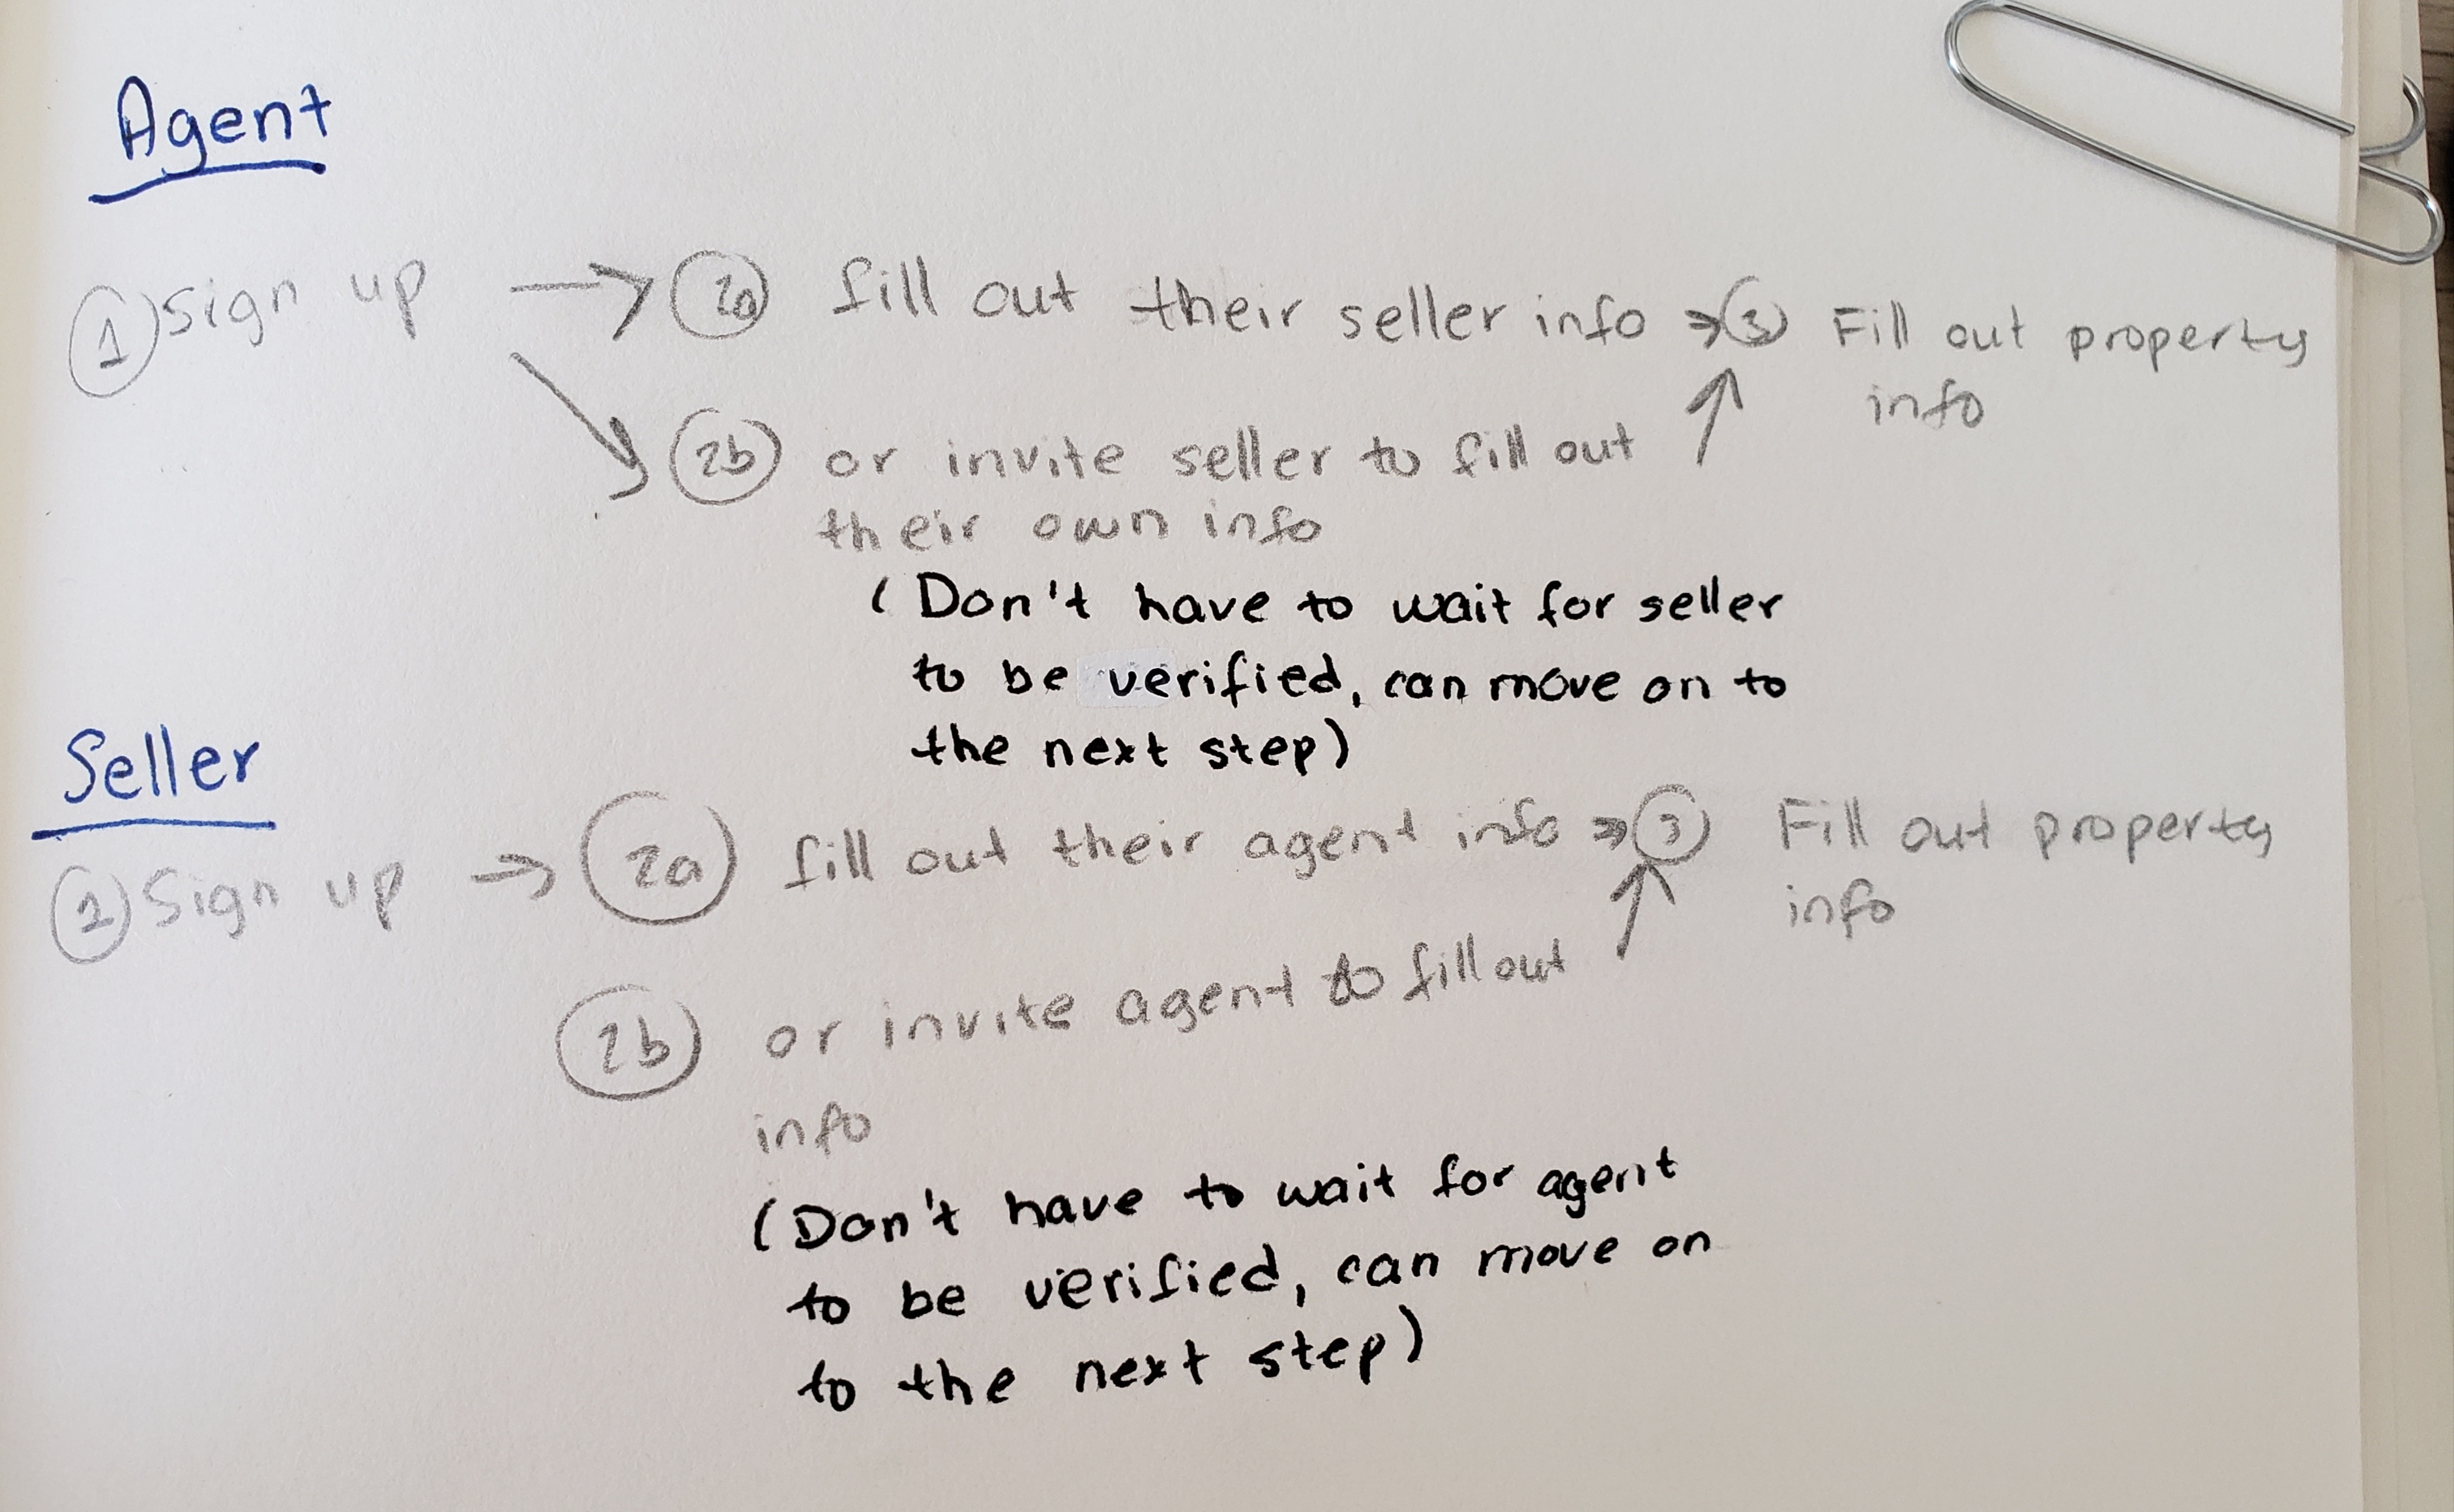 Agent
① Sign up → 2a fill out their seller info → ③ Fill out property
info
2b or invite seller to fill out
their own info
(Don't have to wait for seller
to be verified, can move on to
the next step)
Seller
① Sign up → 2a fill out their agent info → ③ Fill out property
info
2b or invite agent to fill out
info
(Don't have to wait for agent
to be verified, can move on
to the next step)